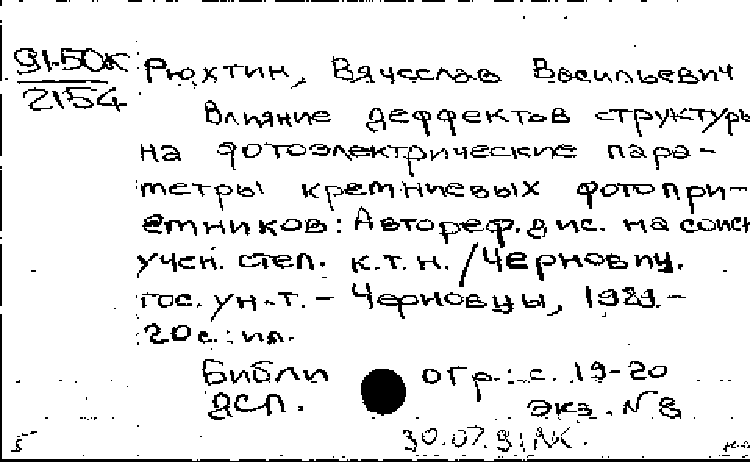 91-50к
2154
Рюхтин, Вячеслав Васильевич
Влияние деффектов структуры
на фотоэлектрические пара-
метры кремниевых фотопри-
емников: Автореф. дис. на соиск
учен. степ. к.т.н. / Черновиц.
гос. ун-т. - Черновцы, 1989 -
20 с.: ил.
Библиогр.: с. 19-20
ДСП. экз. N 8
30.07.91 ЛК.
5